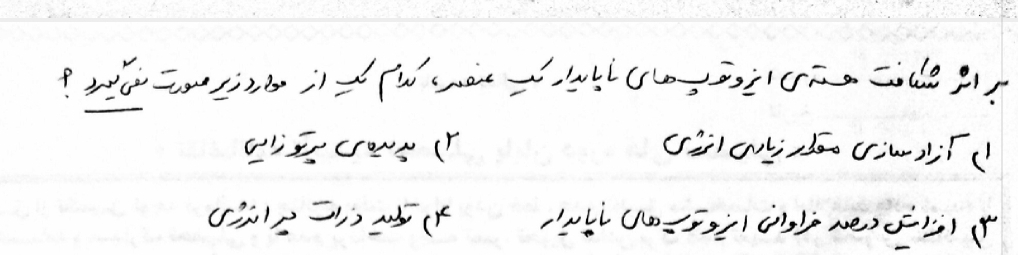 بر اثر شکافت هسته‌ی ایزوتوپ‌های ناپایدار یک عنصر، کدام یک از موارد زیر صورت نمی‌گیرد؟
۱) آزادسازی مقدار زیادی انرژی ۲) پدیده‌ی پرتوزایی
۳) افزایش درصد فراوانی ایزوتوپ‌های ناپایدار ۴) تولید ذرات پر انرژی